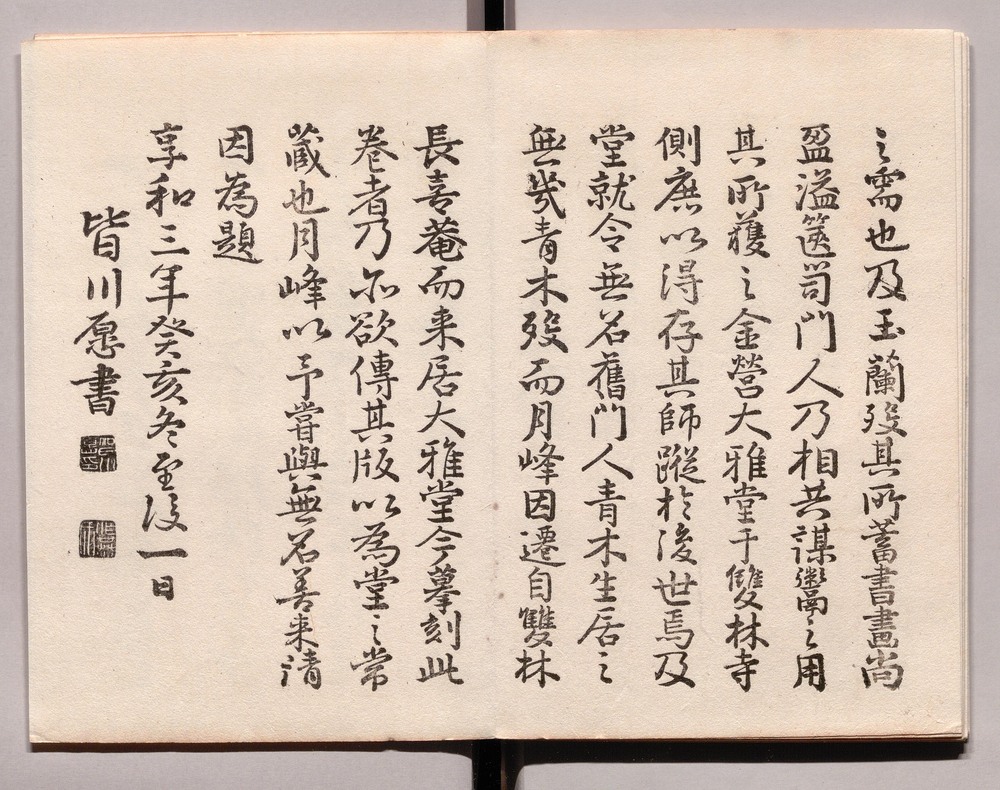 之需也及玉蘭歿其所蓄書畫尚
盈溢篋笥門人乃相共謀鬻之用
其所獲之金營大雅堂于雙林寺
側庶以得存其師蹤於後世焉及
堂就令無名舊門人青木生居之
無幾青木歿而月峰因遷自雙林
長喜菴而来居大雅堂今摹刻此
卷者乃亦欲傳其版以為堂之常
蔵也月峰以予嘗與無名善来請
因為題
享和三年癸亥冬至後一日
皆川愿書